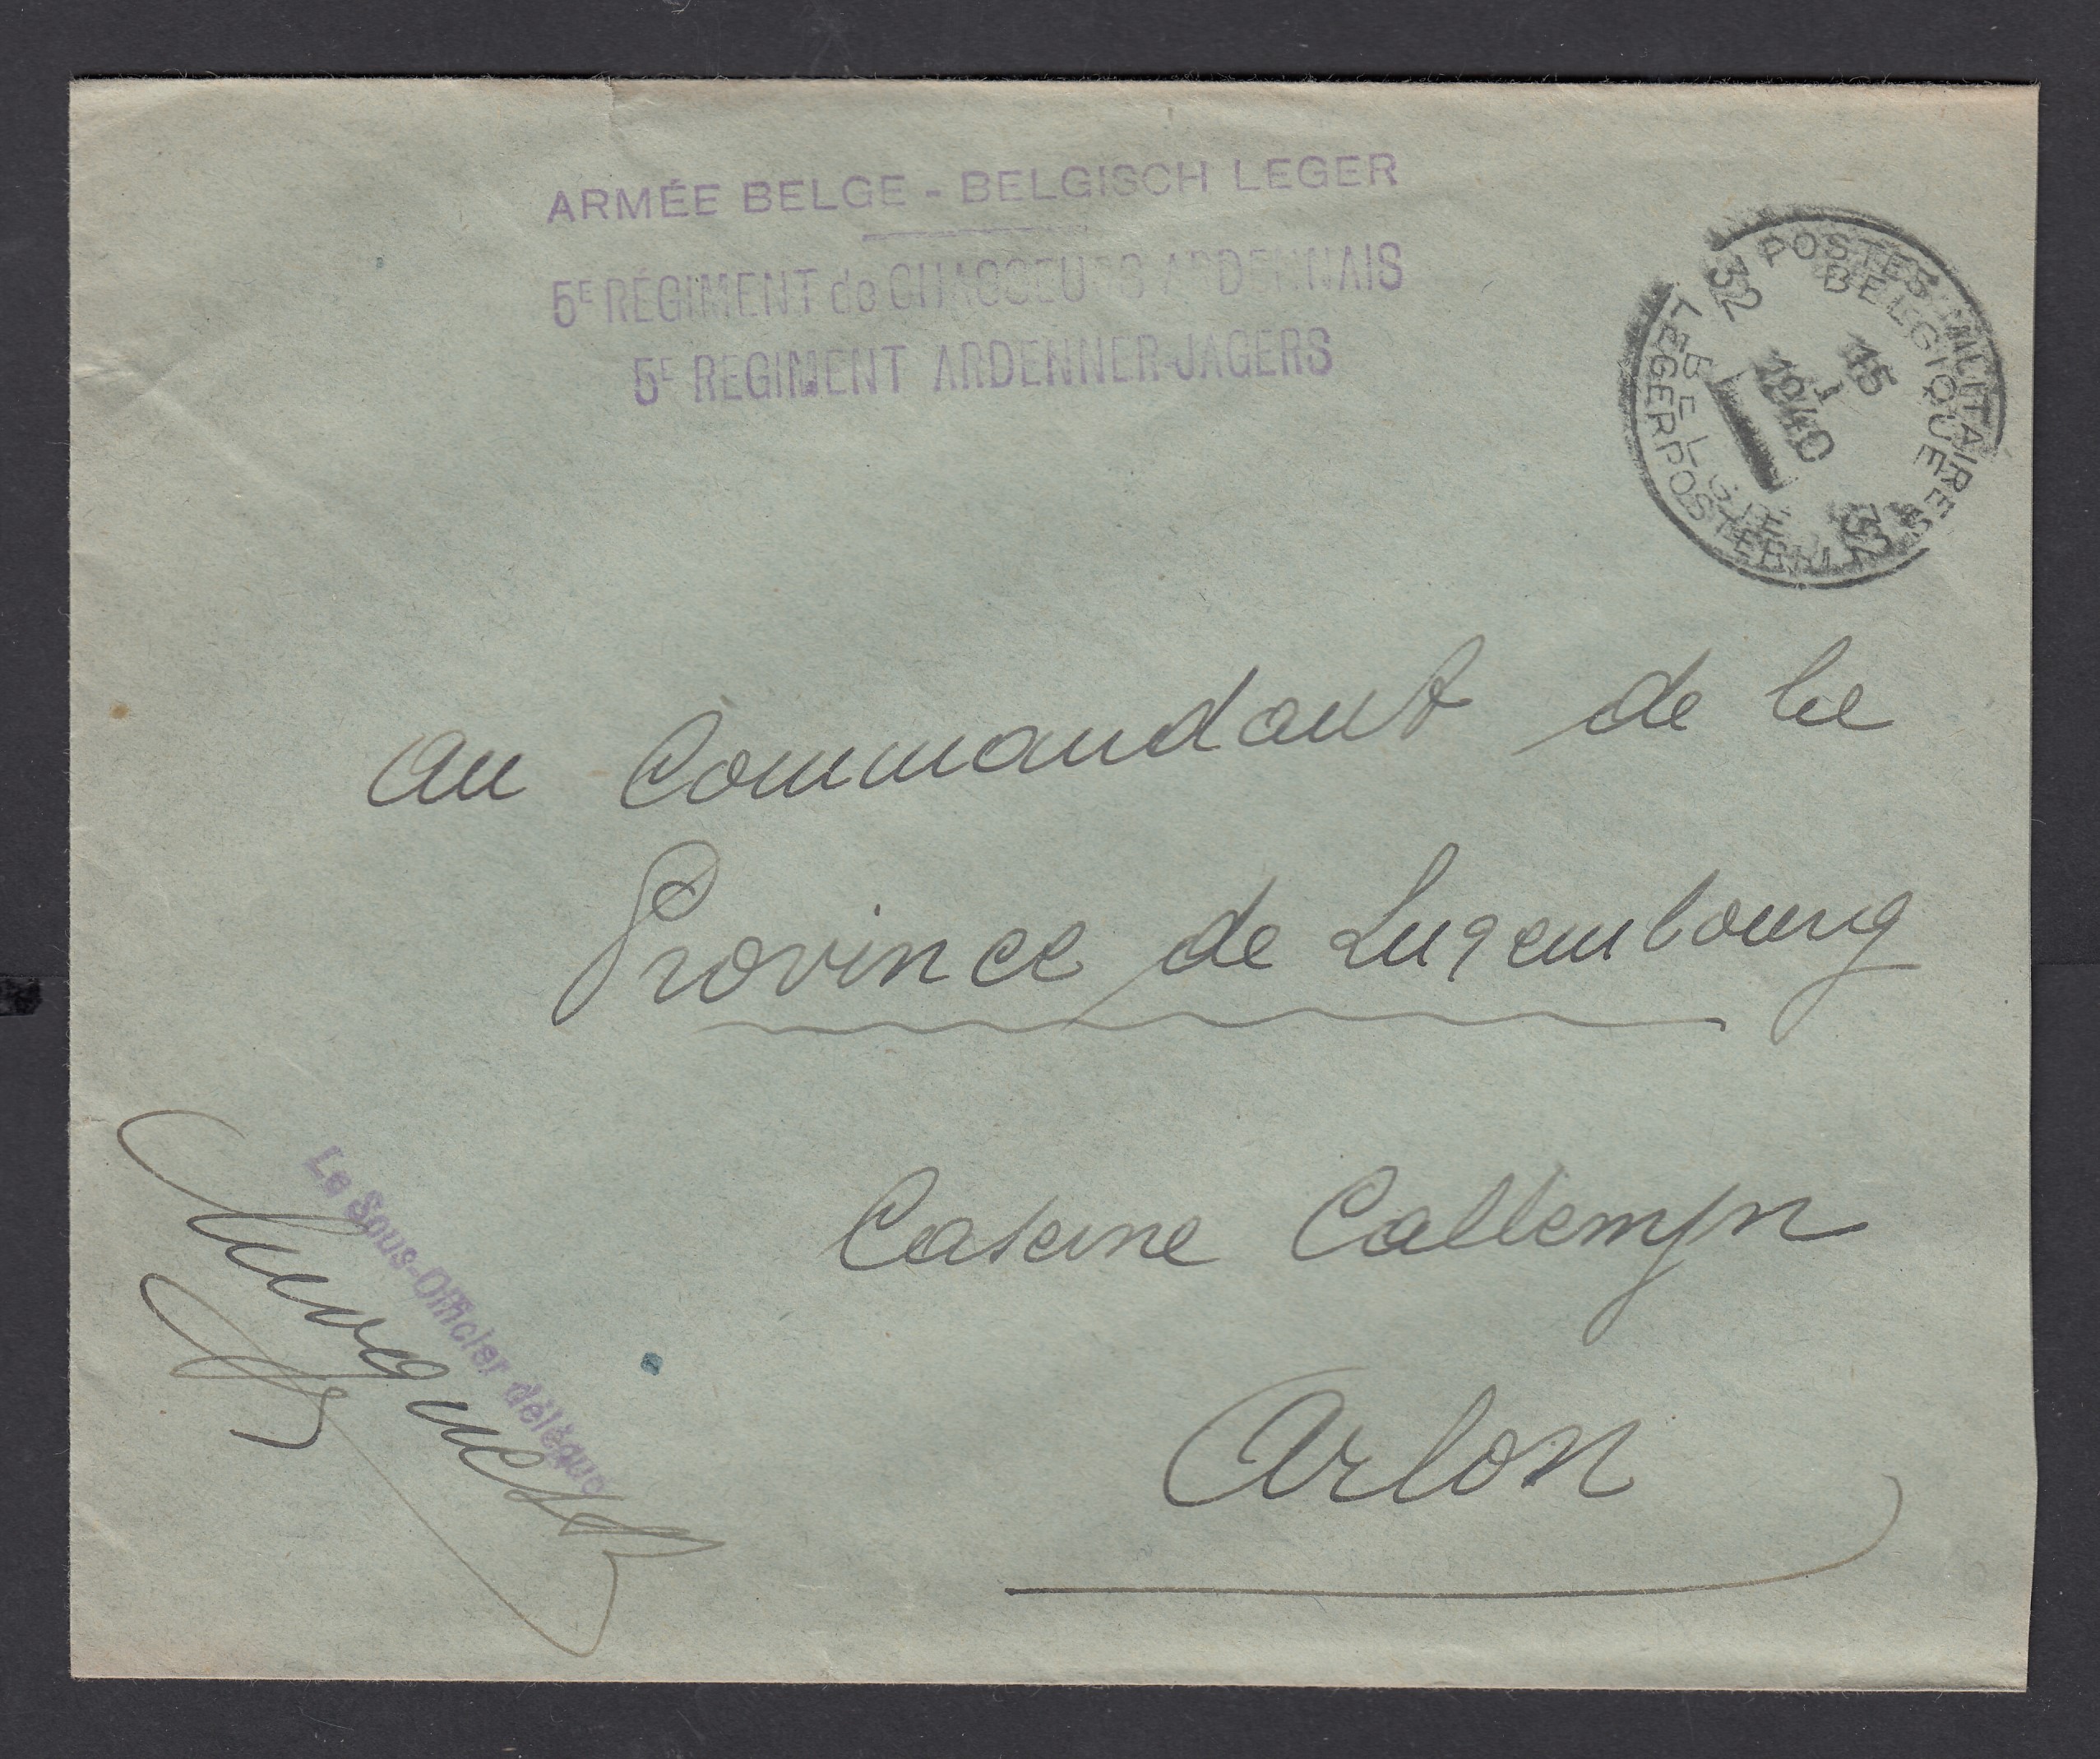 ARMÉE BELGE - BELGISCH LEGER
5E REGIMENT de CHASSEURS ARDENNAIS
5E REGIMENT ARDENNER JAGERS
POSTES MILITAIRES
BELGIQUE
32
15
I
1940
32
BELGIE
LEGERPOSTERIJ
au Commandant de la
Province de Luxembourg
Caserne Callemeyn
Arlon
Le Sous-Officier délégué